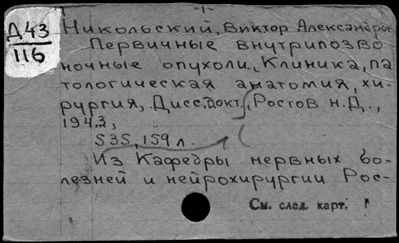 Д43
116
Никольский, Виктор Александров
Первичные внутрипозво
ночные опухоли, Клиника, па
тологическая анатомия, хи-
рургия, Дисс. Докт., Ростов н.Д.,
1943,
535, 159 л.
Из Кафедры нервных бо-
лезней и нейрохирургии Рос-
См. след. карт.